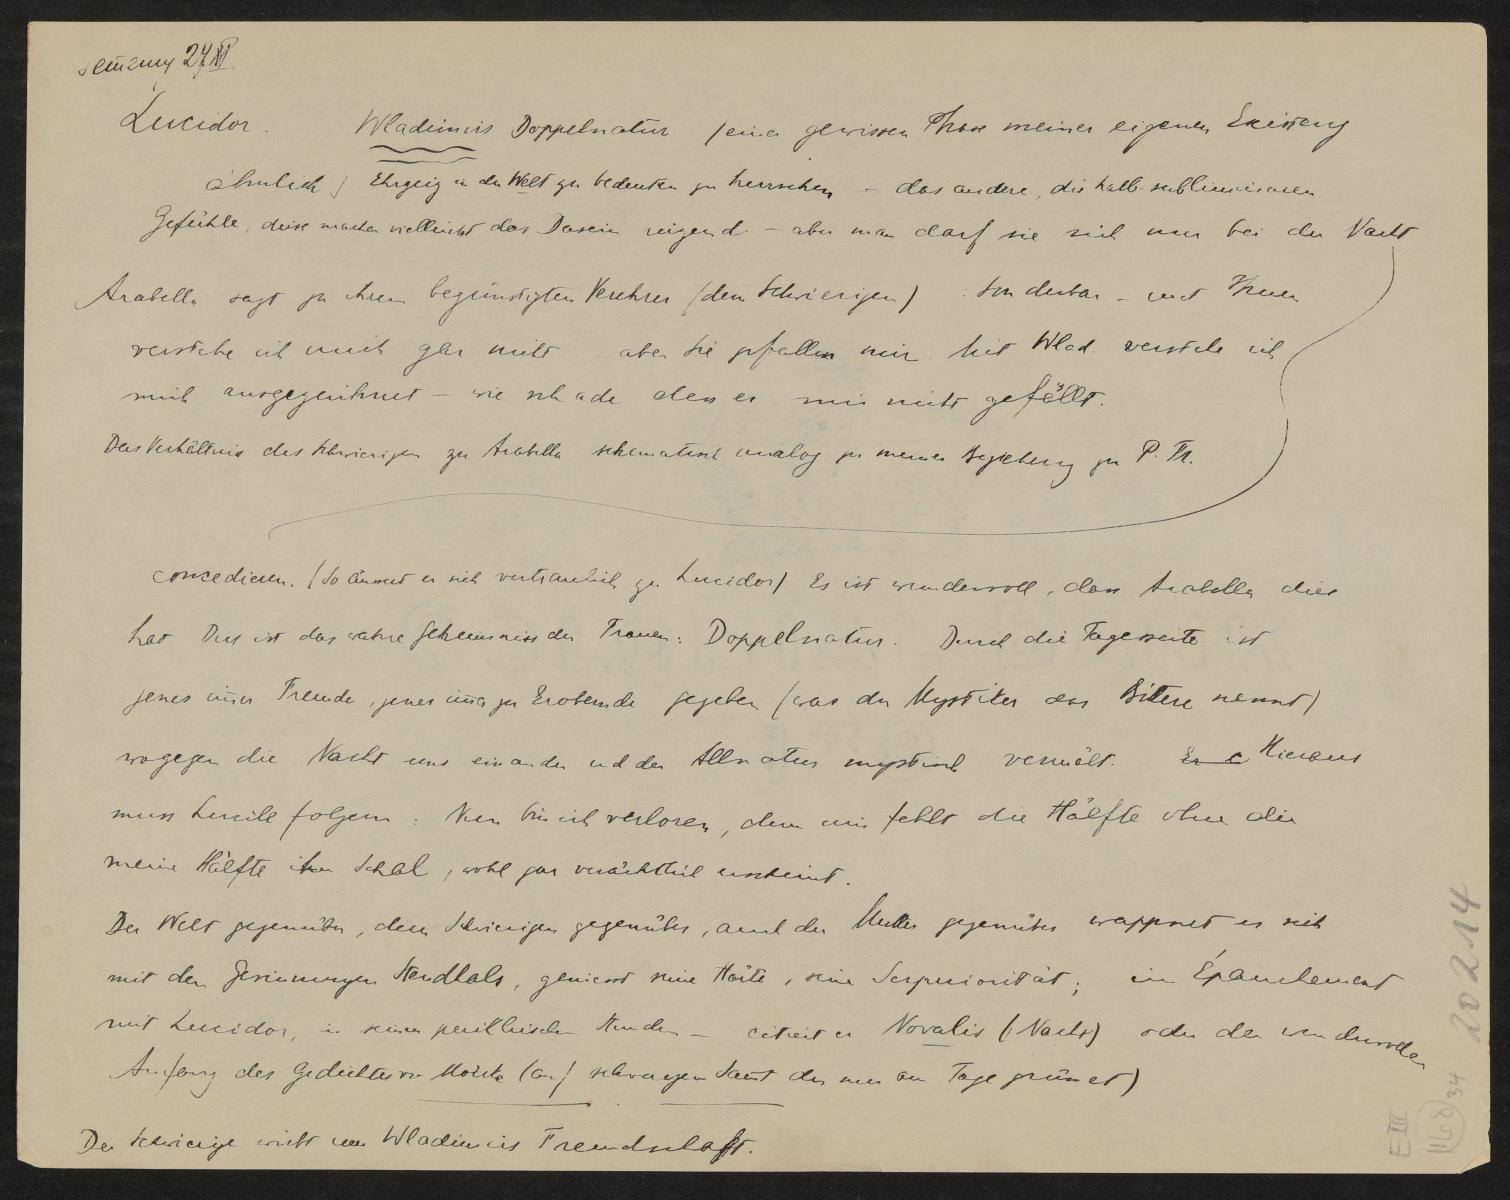 Semmering 27 XI
Lucidor. Wladimirs Doppelnatur (einer gewissen Phase meiner eigenen Existenz
ähnlich) Ehrgeiz in der Welt zu bedeuten zu herrschen – das andere, die halb-subliminaren
Gefühle, diese machen vielleicht das Dasein reizend – aber man darf sie sich nur bei der Nacht
Arabella sagt zu ihrem begünstigten Verehrer (dem Schwierigen): Sonderbar – mit Ihnen
verstehe ich mich gar nicht – aber Sie gefallen mir. Mit Wlad. verstehe ich
mich ausgezeichnet – wie schade dass er mir nicht gefällt.
Das Verhältnis des Schwierigen zu Arabella schematisch analog zu meiner Beziehung zu P. Th.
concedieren. (So äussert er sich vertraulich zu Lucidor) Es ist wundervoll, dass Arabella dies
hat. Dies ist das wahre Geheimniss der Frauen: Doppelnatur. Durch die Tagesseite ist
jenes imer Fremde, jenes imer zu Erobernde gegeben (was der Mystiker das Bittere nennt)
wogegen die Nacht uns einander und der Allnatur mystisch vermält. Er Hieraus
muss Lucile folgern: Nun bin ich verloren, denn mir fehlt die Hälfte ohne die
meine Hälfte ihm schal, wohl gar verächtlich erscheint.
Der Welt gegenüber, dem Schwierigen gegenüber, auch der Mutter gegenüber wappnet er sich
mit den Gesinnungen Stendhals, geniesst seine Härte, seine Superiorität; im Épanchement
mit Lucidor, in seinen Stunden – citiert er Novalis (Nacht) oder den wundervollen
Anfang des Gedichtes von (auf schwarzem Samt der nur am Tage grünet)
Der Schwierige wirbt um Wladimirs Freundschaft.
E III
168 34
20214